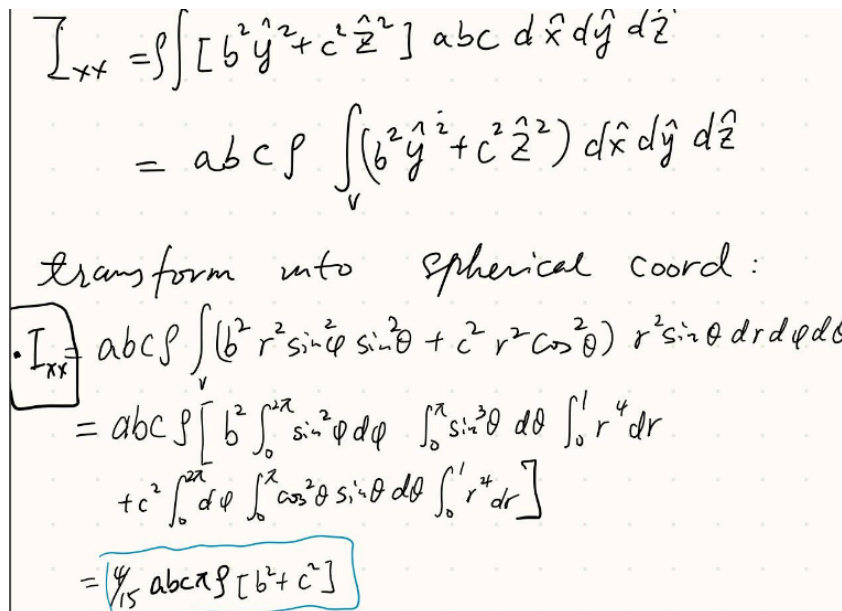 I_xx = ρ∫[b²ŷ² + c²ẑ²] abc dx̂ dŷ dẑ
= abcρ ∫_V (b²ŷ² + c²ẑ²) dx̂ dŷ dẑ
transform into spherical coord :
· I_xx = abcρ ∫_V (b² r² sin²φ sin²θ + c² r² cos²θ) r² sinθ dr dφ dθ
= abcρ [ b² ∫₀^{2π} sin²φ dφ ∫₀^π sin³θ dθ ∫₀^1 r⁴ dr
+ c² ∫₀^{2π} dφ ∫₀^π cos²θ sinθ dθ ∫₀^1 r⁴ dr ]
= 4/15 abcπρ [b² + c²]